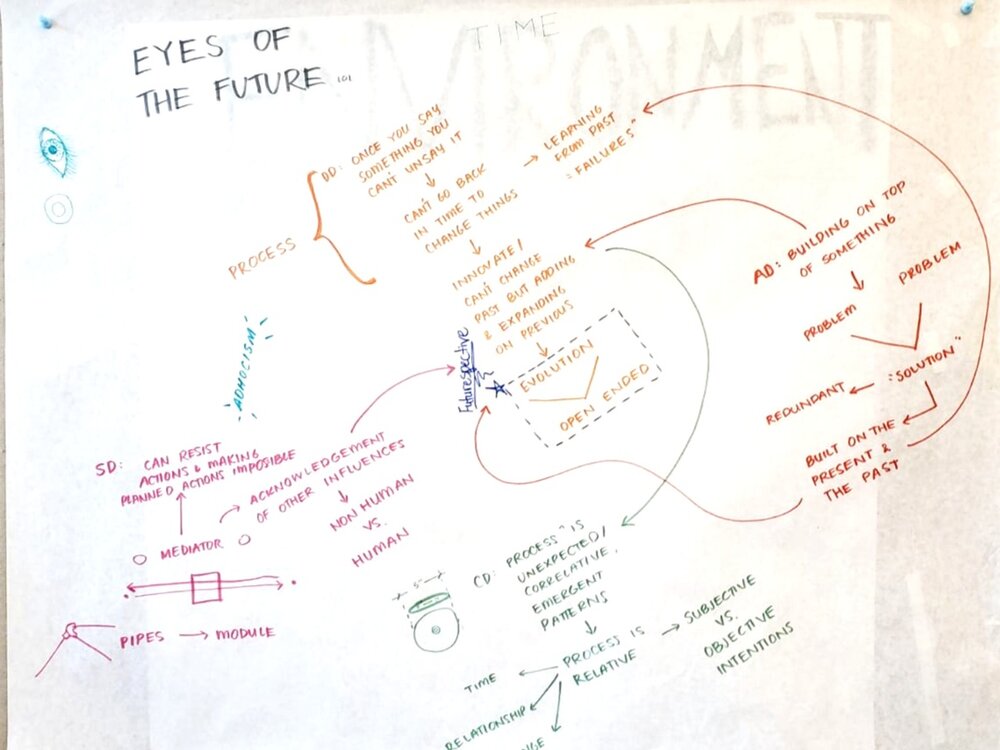 EYES OF
THE FUTURE...
TIME
PROCESS
DD: ONCE YOU SAY
SOMETHING YOU
CAN'T UNSAY IT
CAN'T GO BACK
IN TIME TO
CHANGE THINGS
→ LEARNING
FROM PAST
"FAILURES"
INNOVATE/
CAN'T CHANGE
PAST BUT ADDING
& EXPANDING
ON PREVIOUS
EVOLUTION
OPEN ENDED
Futurespective
ADHOCISM
AD: BUILDING ON TOP
OF SOMETHING
PROBLEM
PROBLEM
"SOLUTION"
REDUNDANT
BUILT ON THE
PRESENT &
THE PAST
SD: CAN RESIST
ACTIONS & MAKING
PLANNED ACTIONS IMPOSIBLE
ACKNOWLEDGEMENT
OF OTHER INFLUENCES
NON HUMAN
VS.
HUMAN
MEDIATOR
PIPES → MODULE
CD: PROCESS" IS
UNEXPECTED/
CORRELATIVE,
EMERGENT
PATTERNS
PROCESS IS
RELATIVE
→ SUBJECTIVE
VS.
OBJECTIVE
INTENTIONS
TIME
RELATIONSHIP